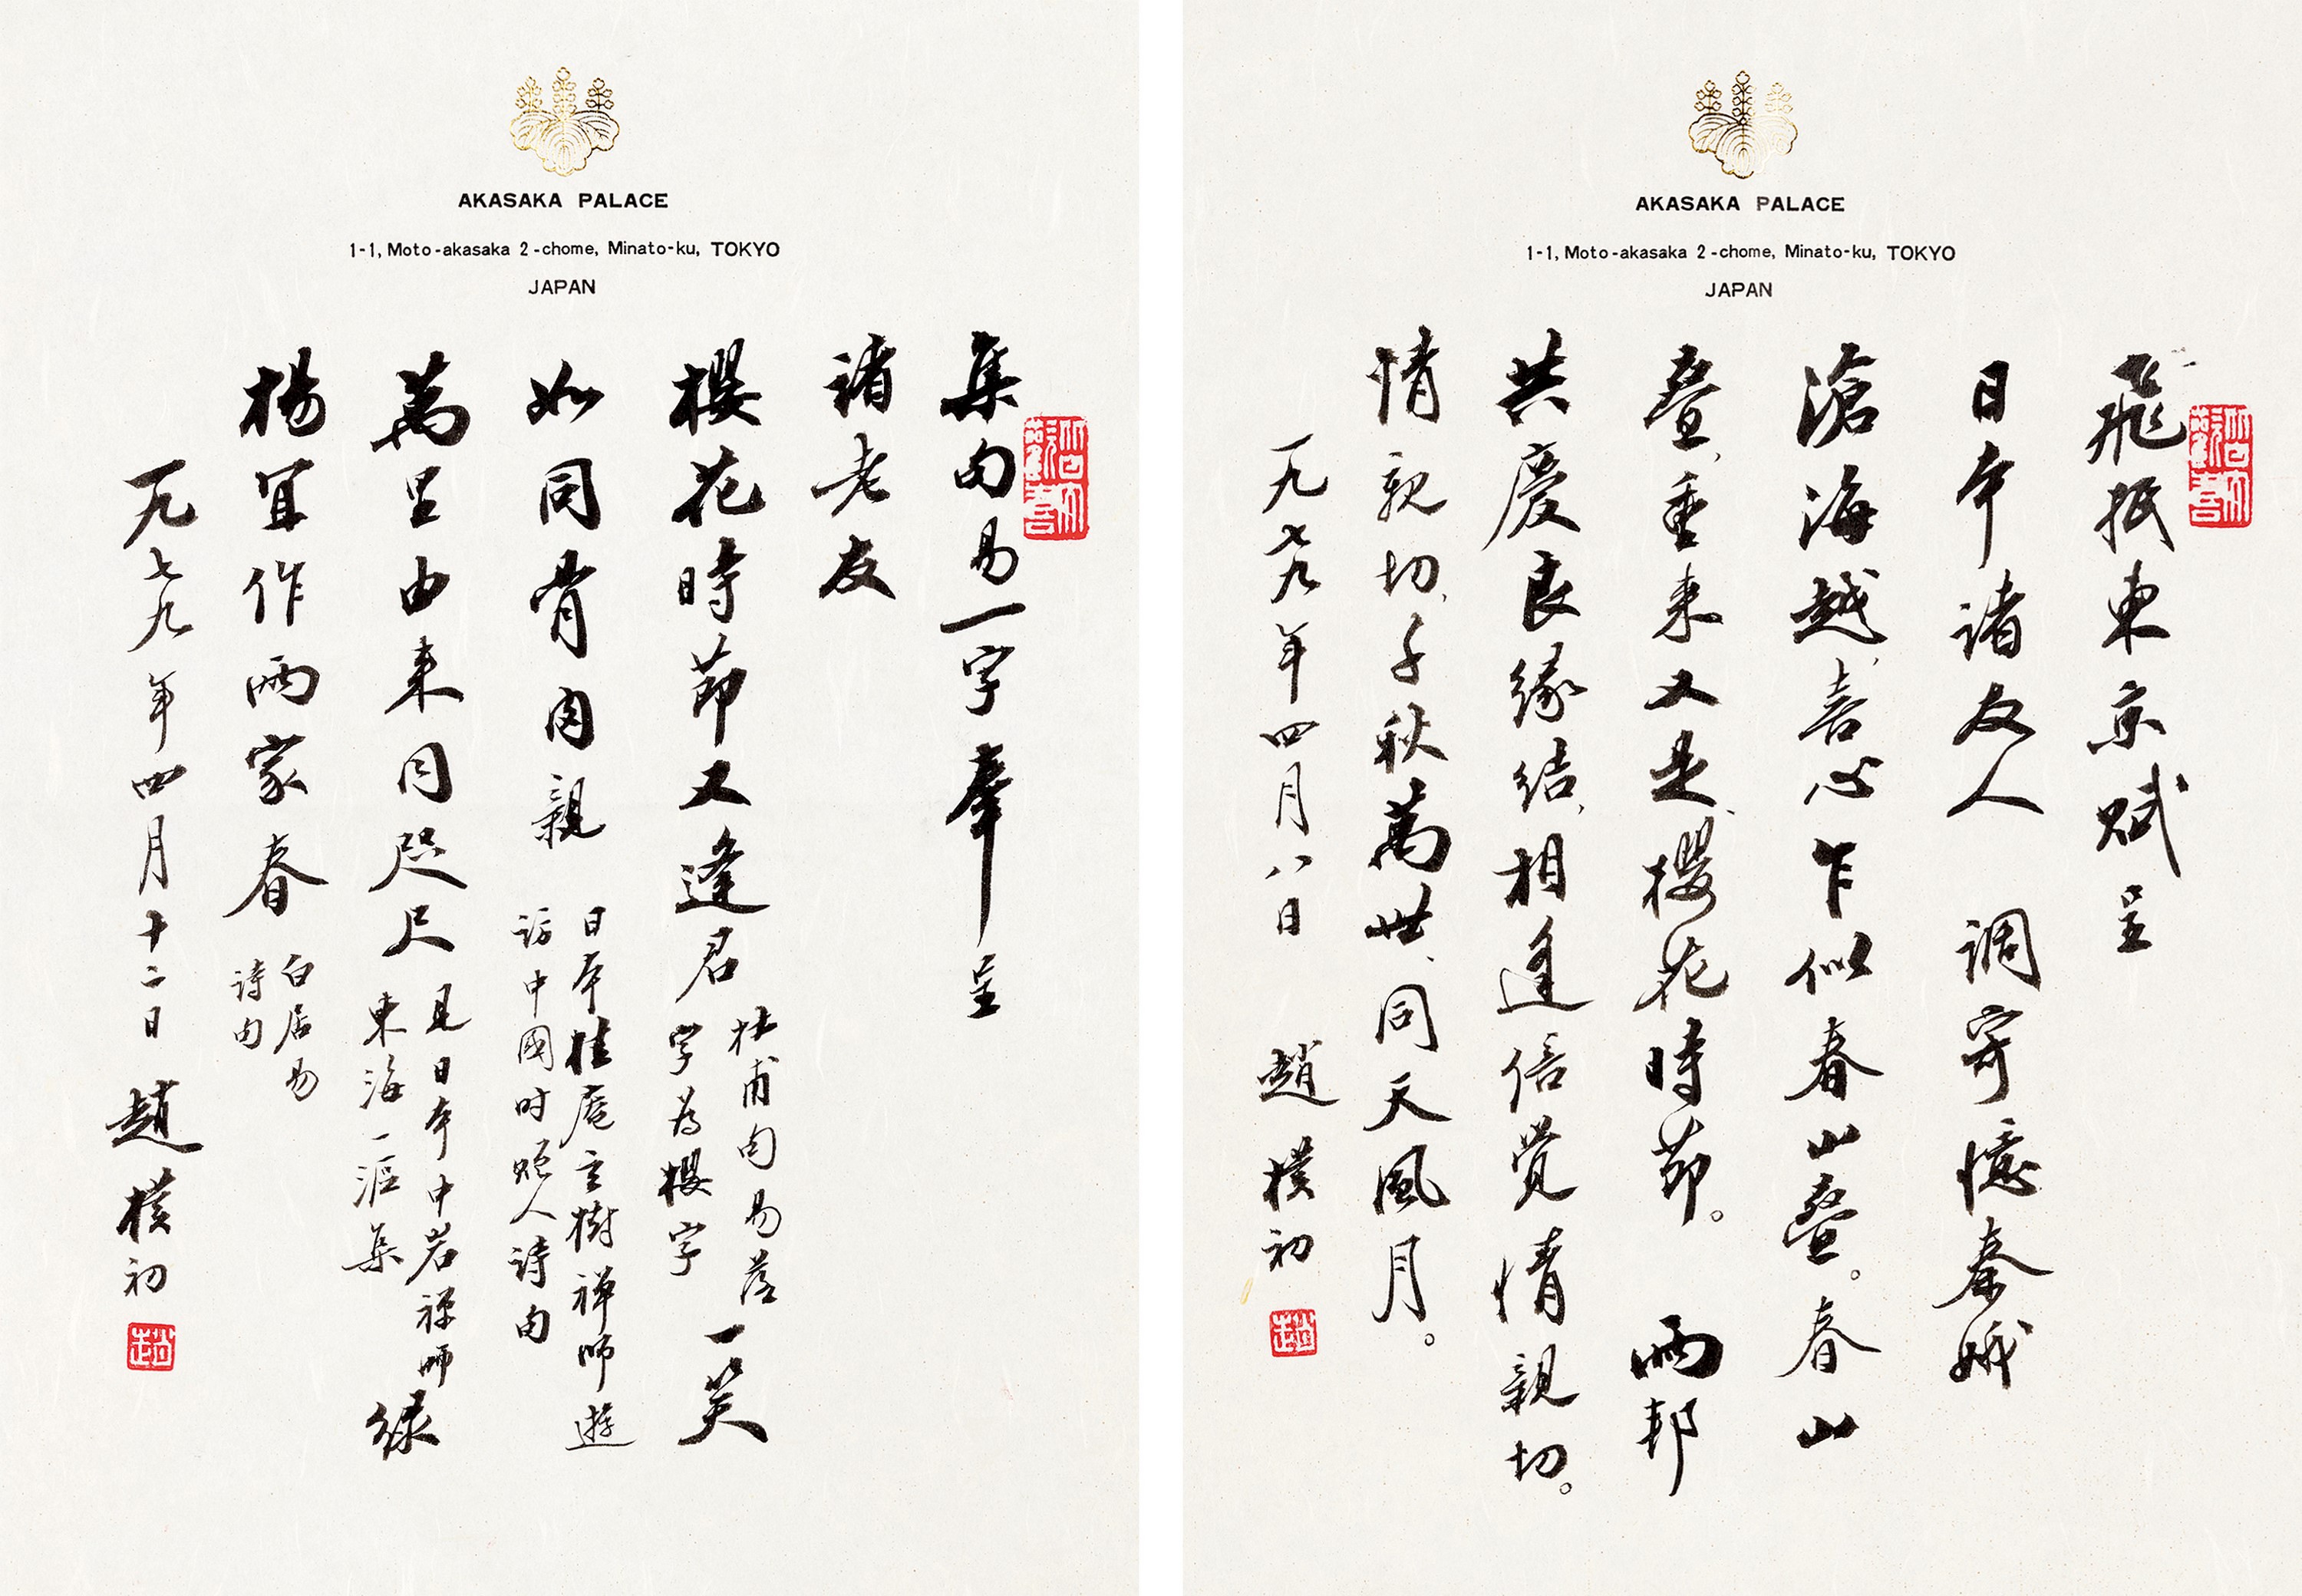 AKASAKA PALACE
1-1, Moto-akasaka 2-chome, Minato-ku, TOKYO
JAPAN
飛抵東京賦呈
日本諸友人 調寄憶秦娥
滄海越、喜心乍似春山疊。春山
疊、重來又是、櫻花時節。 兩邦
共慶良緣結、相逢倍覺情親切。
情親切、千秋萬世、同天風月。
一九七九年四月八日 趙樸初
趙
AKASAKA PALACE
1-1, Moto-akasaka 2-chome, Minato-ku, TOKYO
JAPAN
集句易一字奉呈
諸老友
櫻花時節又逢君 杜甫句易落字為櫻字 一笑
如同骨肉親 日本桂庵玄樹禅師遊訪中國时贈人詩句
萬里由来同咫尺 見日本中岩禅師東海一漚集 綠
楊宜作兩家春 白居易詩句
一九七九年四月十二日 趙樸初
趙